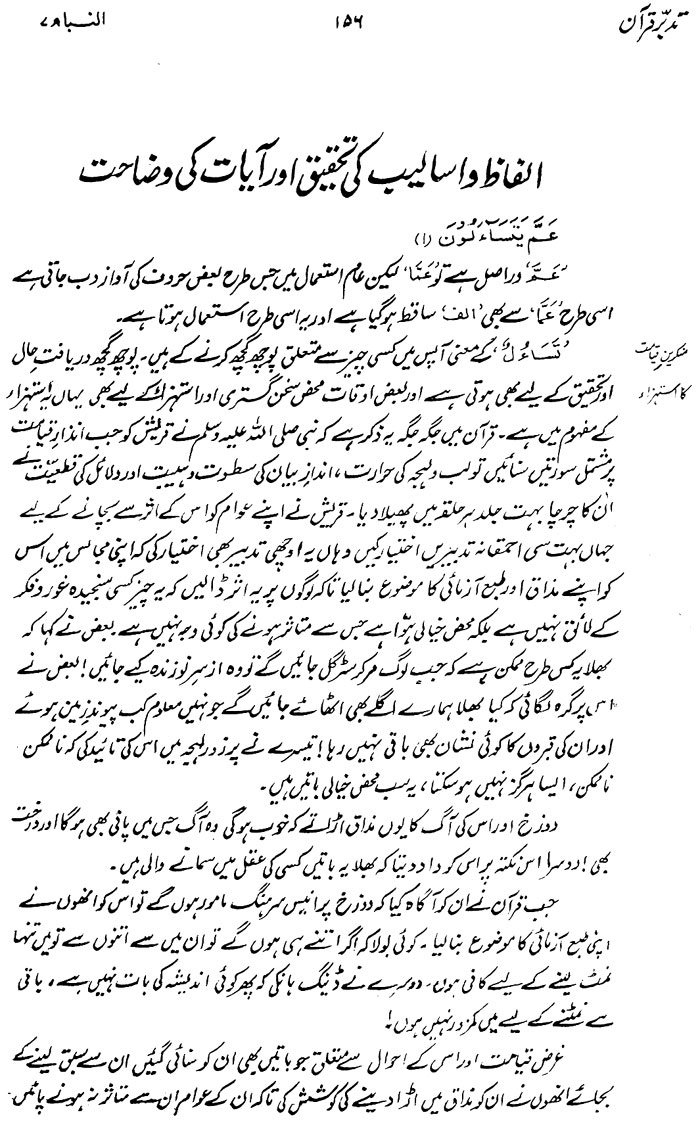 تدبّرِ قرآن ۱۵۶ النبا ۷۸
الفاظ و اسالیب کی تحقیق اور آیات کی وضاحت
عَمَّ یَتَسَآءَلُوْنَ (۱)
’عَمَّ‘ دراصل ہے تو ’عَمَّا‘ لیکن عام استعمال میں جس طرح بعض حروف کی آواز دب جاتی ہے
اسی طرح ’عَمَّا‘ سے بھی ’الف‘ ساقط ہوگیا ہے اور یہ اسی طرح استعمال ہوتا ہے۔
منکرین قیامت
کا استہزاء
’تَسَاءُلٌ‘ کے معنی آپس میں کسی چیز سے متعلق پوچھ گچھ کرنے کے ہیں۔ پوچھ گچھ دریافتِ حال
اور تحقیق کے لیے بھی ہوتی ہے اور بعض اوقات محض سخن گستری اور استہزاء کے لیے بھی یہاں یہ استہزاء
کے مفہوم میں ہے۔ قرآن میں جگہ جگہ یہ ذکر ہے کہ نبی صلی اللہ علیہ وسلم نے قریش کو جب انذارِ قیامت
پر مشتمل سورتیں سنائیں تو لب و لہجہ کی حرارت، اندازِ بیان کی سطوت و ہیبت اور دلائل کی قطعیت نے
ان کا چرچا بہت جلد ہر حلقہ میں پھیلا دیا۔ قریش نے اپنے عوام کو اس کے اثر سے بچانے کے لیے
جہاں بہت سی احمقانہ تدبیریں اختیار کیں وہاں یہ اوچھی تدبیر بھی اختیار کی کہ اپنی مجالس میں اس
کو اپنے مذاق اور طبع آزمائی کا موضوع بنا لیا تاکہ لوگوں پر یہ اثر ڈالیں کہ یہ چیز کسی سنجیدہ غور و فکر
کے لائق نہیں ہے بلکہ محض خیالی ہوّا ہے جس سے متاثر ہونے کی کوئی وجہ نہیں ہے۔ بعض نے کہا کہ
بھلا یہ کس طرح ممکن ہے کہ جب لوگ مر کر سڑ گل جائیں گے تو وہ ازسرِ نو زندہ کیے جائیں! بعض نے
اس پر گرہ لگائی کہ کیا بھلا ہمارے اگلے بھی اٹھائے جائیں گے جو نہیں معلوم کب پیوندِ زمین ہوئے
اور ان کی قبروں کا کوئی نشان بھی باقی نہیں رہا! تیسرے نے پرزور لہجہ میں اس کی تائید کی کہ ناممکن
ناممکن، ایسا ہرگز نہیں ہوسکتا، یہ سب محض خیالی باتیں ہیں۔
دوزخ اور اس کی آگ کا یوں مذاق اڑاتے کہ خوب ہوگی وہ آگ جس میں پانی بھی ہوگا اور درخت
بھی! دوسرا اس نکتہ پر اس کو داد دیتا کہ بھلا یہ باتیں کسی کی عقل میں سمانے والی ہیں۔
جب قرآن نے ان کو آگاہ کیا کہ دوزخ پر انیس سرہنگ مامور ہوں گے تو اس کو انھوں نے
اپنی طبع آزمائی کا موضوع بنا لیا۔ کوئی بولا کہ اگر اتنے ہی ہوں گے تو ان میں سے اتنوں سے تو میں تنہا
نمٹ لینے کے لیے کافی ہوں۔ دوسرے نے ڈینگ ہانکی کہ پھر کوئی اندیشہ کی بات نہیں ہے، باقی
سے نمٹنے کے لیے میں کمزور نہیں ہوں!
غرض قیامت اور اس کے احوال سے متعلق جو باتیں بھی ان کو سنائی گئیں ان سے سبق لینے کے
بجائے انھوں نے ان کو مذاق میں اڑا دینے کی کوشش کی تاکہ ان کے عوام ان سے متاثر نہ ہونے پائیں